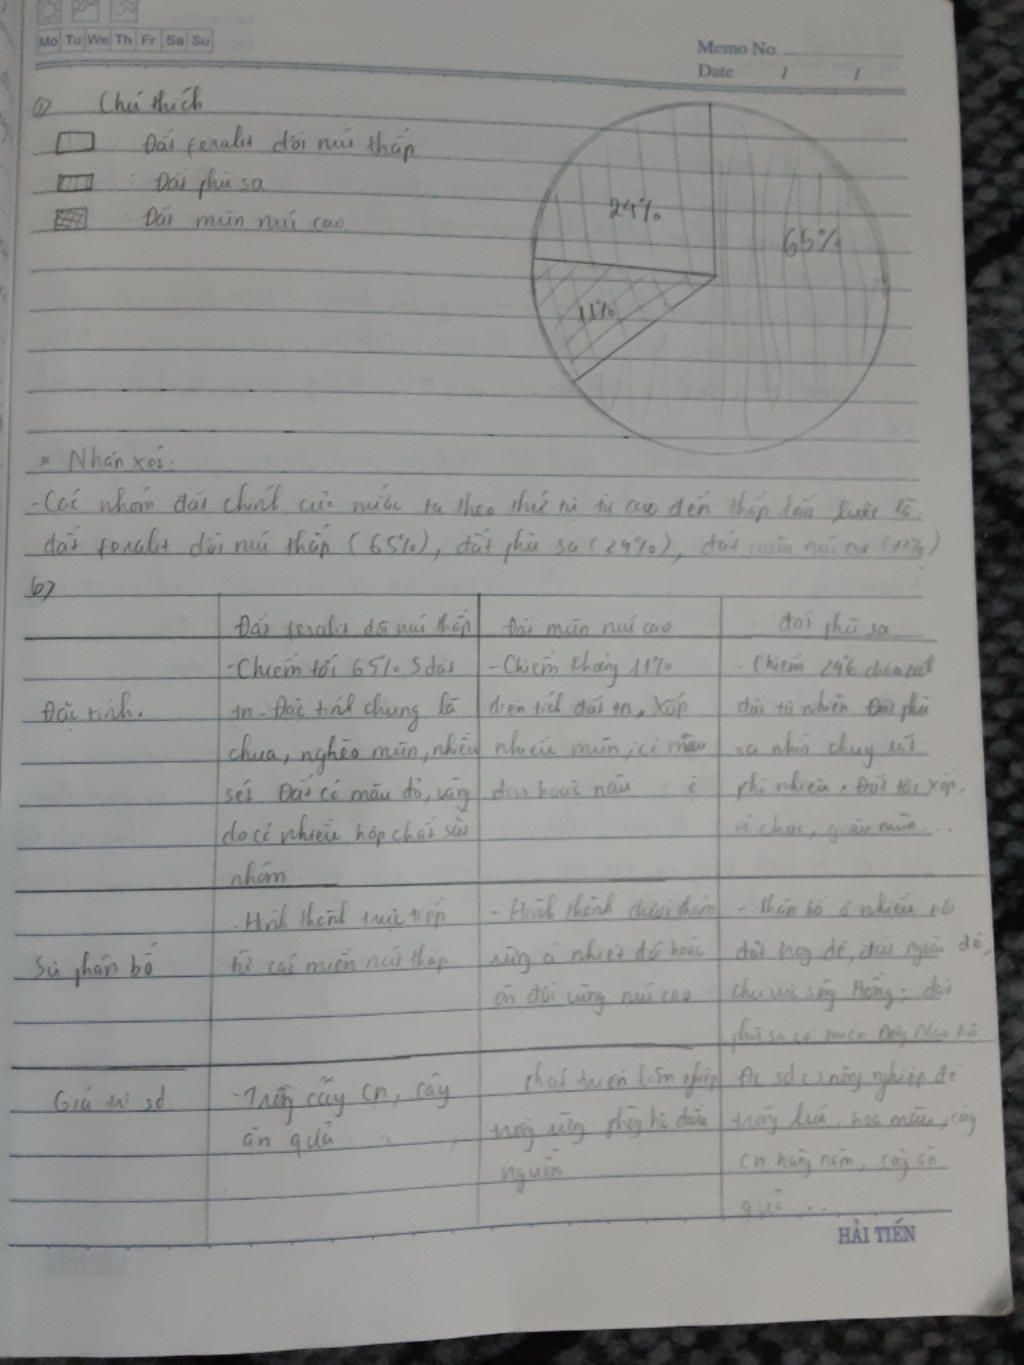 Mo Tu We Th Fr Sa Su
Memo No.
Date / /
Chú thích
Đất feralit đồi núi thấp
: Đất phù sa
Đất mùn núi cao
24%
65%
11%
* Nhận xét.
- Các nhóm đất chính của nước ta theo thứ tự từ cao đến thấp lần lượt là
đất feralit đồi núi thấp (65%), đất phù sa (24%), đất mùn núi cao (11%)
b)
Đất feralit đồi núi thấp
Đất mùn núi cao
đất phù sa
Đặc tính.
- Chiếm tới 65% S đất
tn. Đặc tính chung là
chua, nghèo mùn, nhiều
sét. Đất có màu đỏ, vàng
do có nhiều hợp chất sắt
nhôm
- Chiếm khoảng 11%
diện tích đất tn. Xốp
nhiều mùn, có màu
đen hoặc nâu
- Chiếm 24% diện tích
đất tự nhiên. Đất phù
sa nhìn chung rất
phì nhiêu. Đất tơi xốp,
ít chua, giàu mùn...
Sự phân bố
- Hình thành trực tiếp
từ các miền núi thấp
- Hình thành dưới thảm
rừng á nhiệt đới hoặc
ôn đới vùng núi cao
- Phân bố ở nhiều nơi
đất trong đê, đất ngoài đê,
khu vực sông Hồng; đất
phù sa cổ miền Đông Nam Bộ
Giá trị sd
- Trồng cây cn, cây
ăn quả
phát triển lâm nghiệp
trồng rừng phòng hộ đầu
nguồn
nông nghiệp để
trồng lúa, hoa màu, cây
cn hàng năm, cây ăn
quả...
HẢI TIẾN